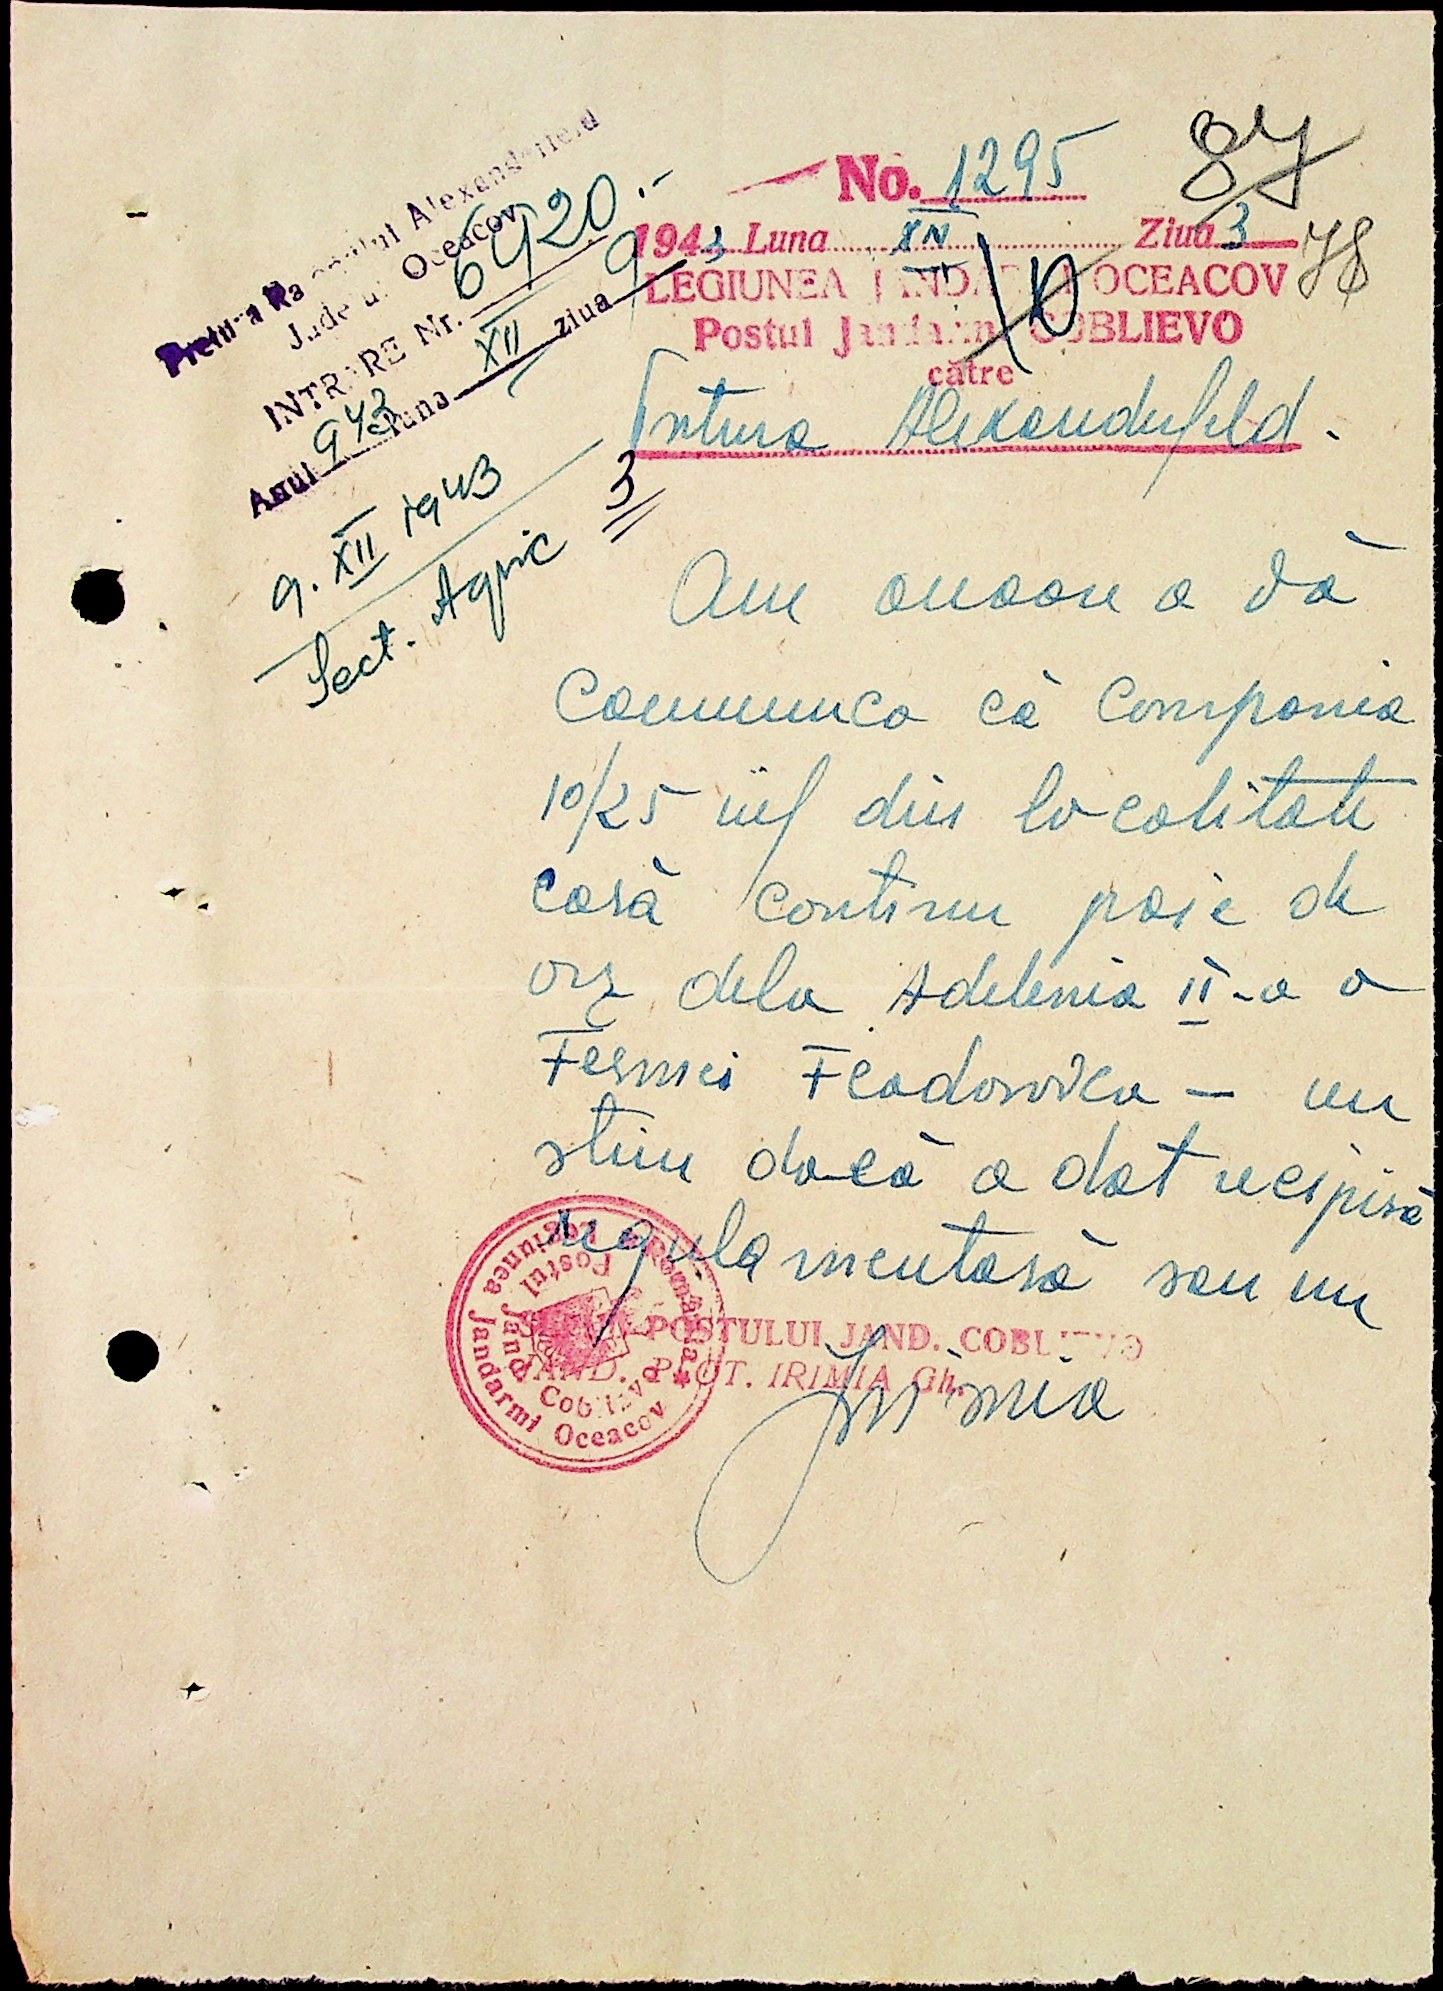 Pretura Raionului Alexanderfeld
Județul Oceacov
INTRARE Nr. 6920.-
Anul 943 luna XII ziua 9
9. XII 1943
Sect. Agric 3
87
78
No. 1295
1943 Luna XII Ziua 3
LEGIUNEA JANDARMI OCEACOV
Postul Jandarmi COBLIEVO
către
Pretura Alexanderfeld.
Am onoare a vă
comunica că Compania
10/25 inf din localitate
cară continu paie de
orz dela Adelenia II-a a
Fermei Feodorovca – nu
stiu dacă a dat recipisă
regulamentară sau nu
POSTULUI JAND. COBLIEVO
JAND. PLOT. IRIMIA Gh.
Irimia
România * Legiunea Jandarmi Oceacov
Postul Jand. Coblievo